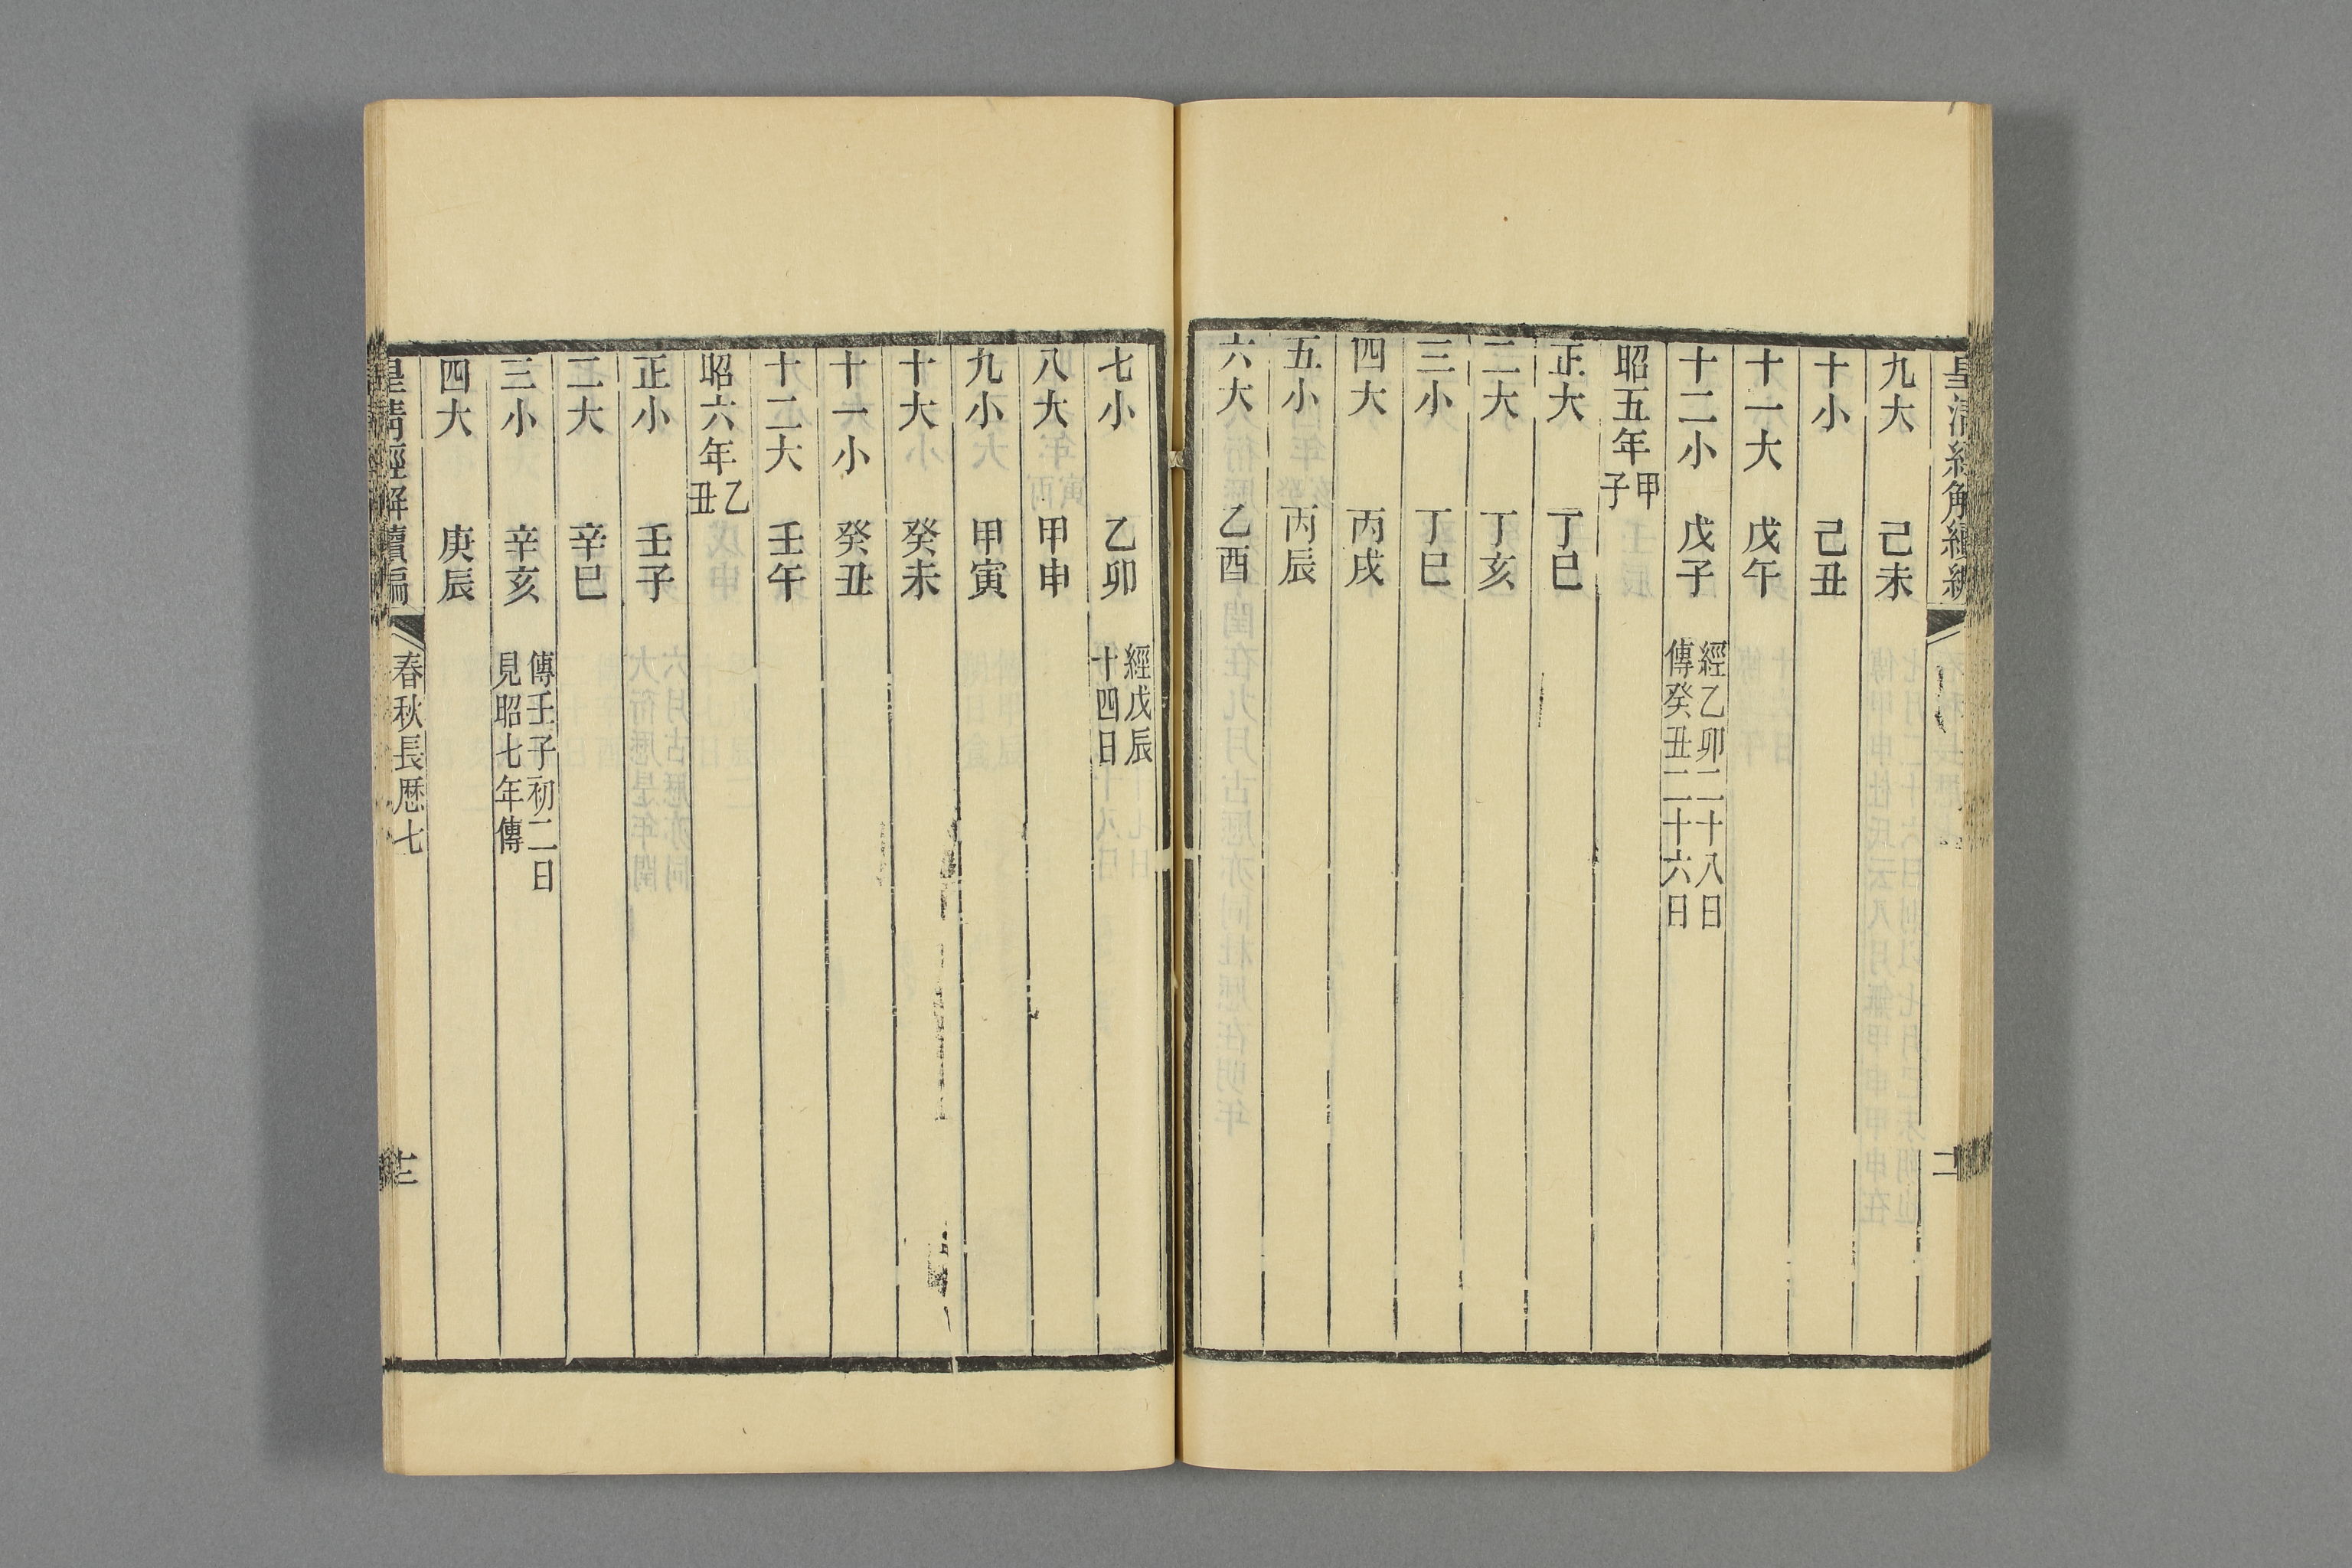 九大　己未
十小　己丑
十一大　戊午
十二小　戊子　經乙卯二十八日
傳癸丑二十六日
昭五年甲子
正大　丁巳
二大　丁亥
三小　丁巳
四大　丙戌
五小　丙辰
六大　乙酉
七小　乙卯　經戊辰
十四日
八大　甲申
九小　甲寅
十大　癸未
十一小　癸丑
十二大　壬午
昭六年乙丑
正小　壬子
二大　辛巳
三小　辛亥　傳壬子初二日
見昭七年傳
四大　庚辰
皇清經解續編　春秋長厯七